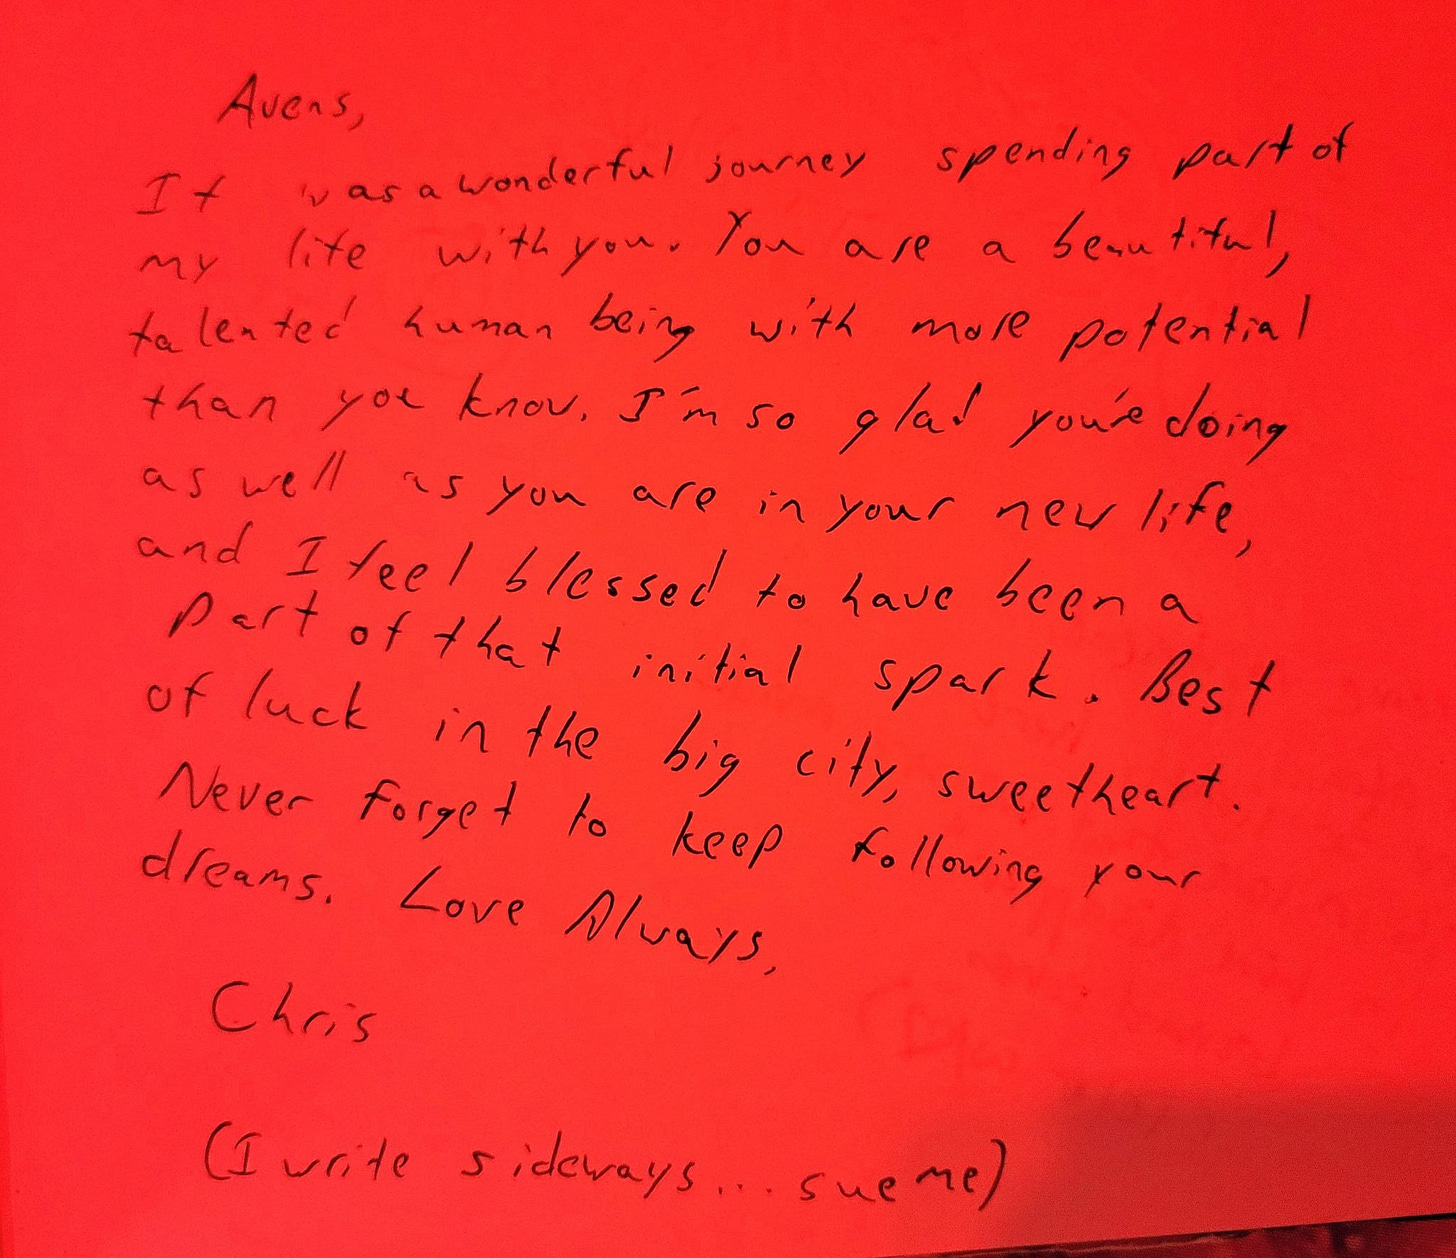 Avens,
It was a wonderful journey spending part of
my life with you. You are a beautiful,
talented human being with more potential
than you know. I'm so glad you're doing
as well as you are in your new life,
and I feel blessed to have been a
part of that initial spark. Best
of luck in the big city, sweetheart.
Never forget to keep following your
dreams. Love Always,
Chris
(I write sideways... sue me)